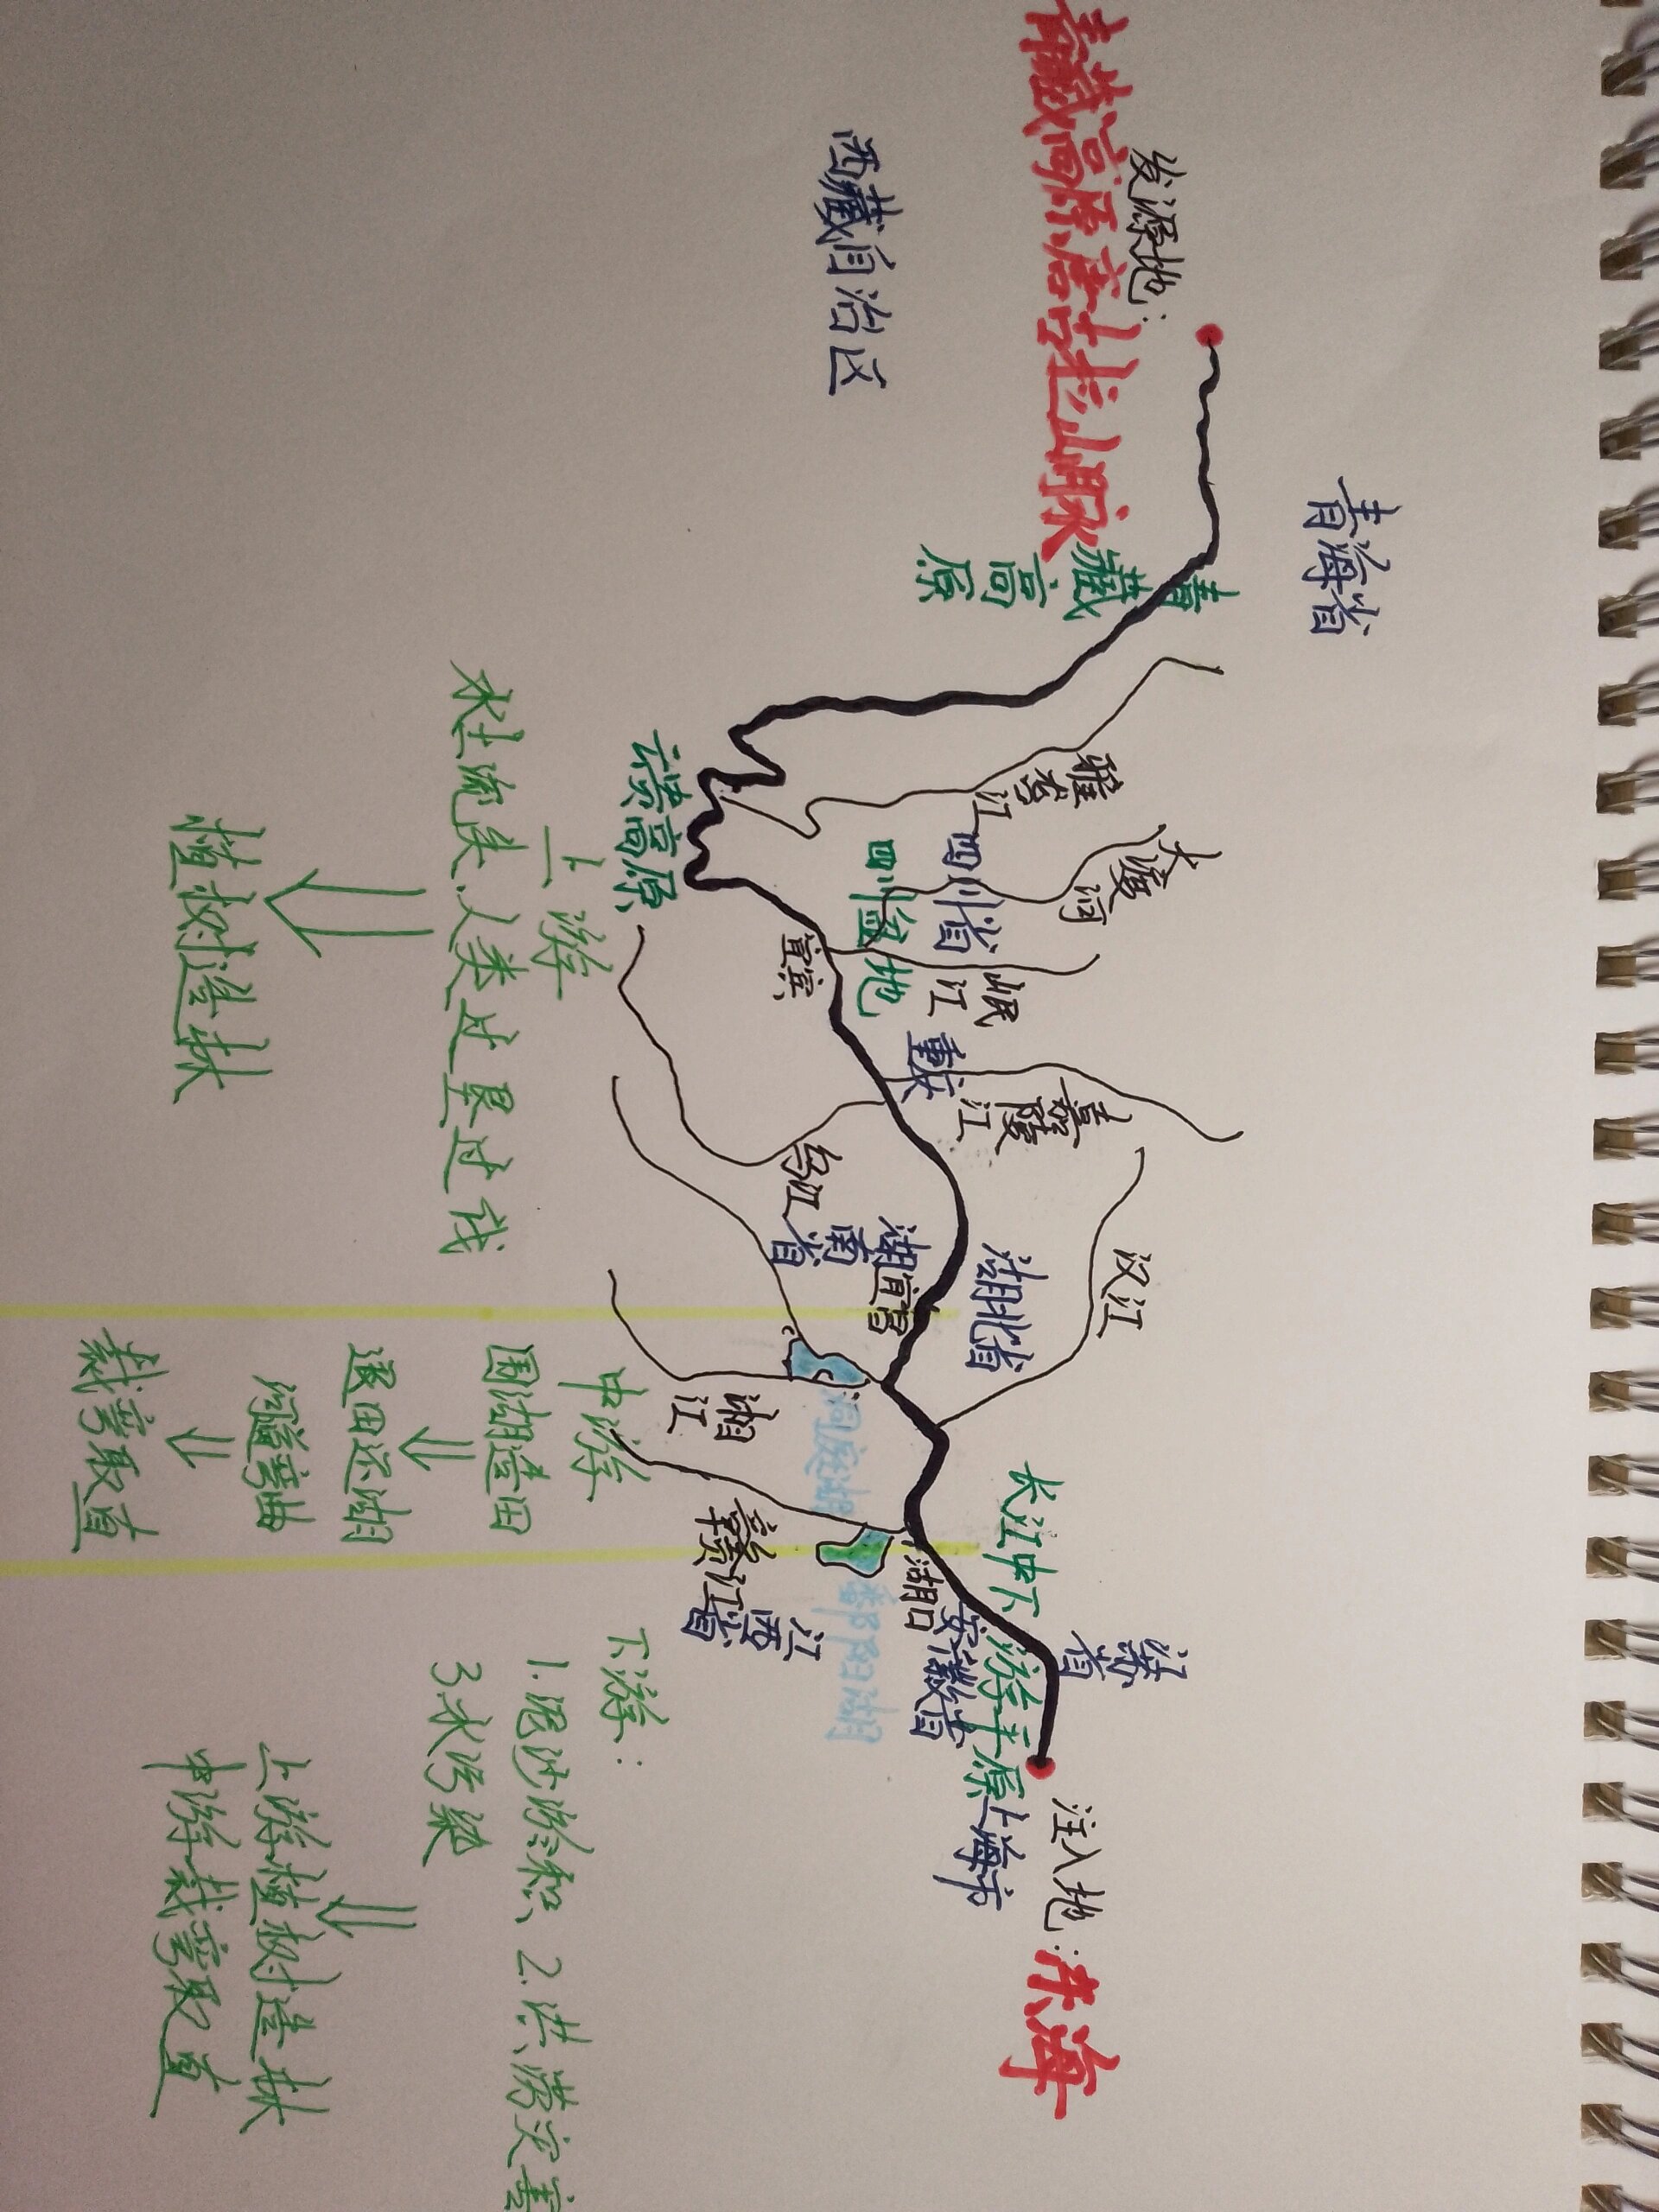 青海省
发源地：
青藏高原唐古拉山脉
西藏自治区
青藏高原
雅砻江
大渡河
四川省
四川盆地
岷江
宜宾
云贵高原
重庆
嘉陵江
乌江
汉江
湖北省
湖南省
宜昌
洞庭湖
湘江
长江中下游平原
江苏省
湖口
安徽省
鄱阳湖
赣江
江西省
上海市
注入地：东海
上游
水土流失、人类过垦过伐
植树造林
中游
围湖造田
退田还湖
河道弯曲
裁弯取直
下游：
1.泥沙淤积 2.洪涝灾害
3水污染
上游植树造林
中游裁弯取直